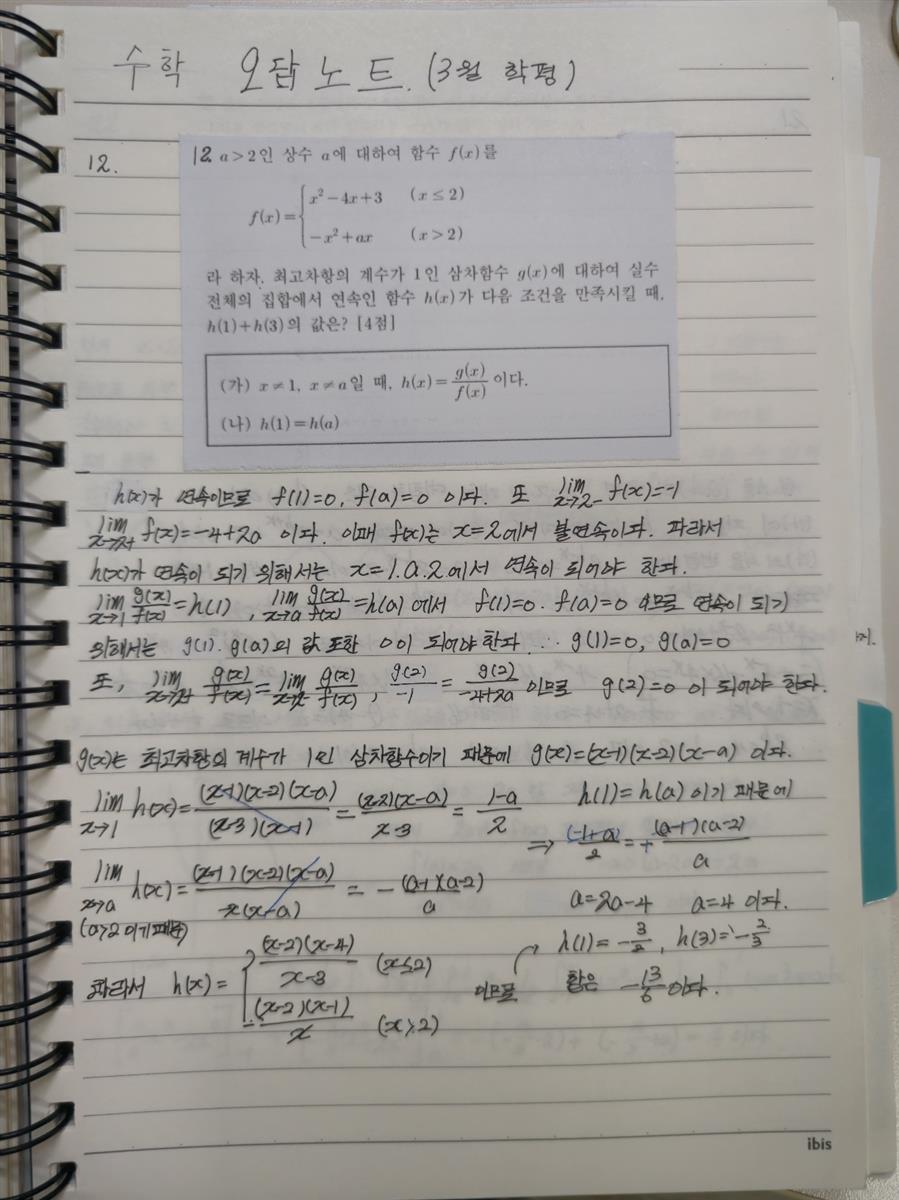 수학 오답노트. (3월 학평)
12.
12. a>2인 상수 a에 대하여 함수 f(x)를
f(x)={ x²-4x+3 (x≤2)
-x²+ax (x>2)
라 하자. 최고차항의 계수가 1인 삼차함수 g(x)에 대하여 실수
전체의 집합에서 연속인 함수 h(x)가 다음 조건을 만족시킬 때,
h(1)+h(3)의 값은? [4점]
(가) x≠1, x≠a일 때, h(x)=g(x)/f(x)이다.
(나) h(1)=h(a)
h(x)가 연속이므로 f(1)=0, f(a)=0 이다. 또 lim x→2- f(x)=-1
lim x→2+ f(x)=-4+2a 이다. 이때 f(x)는 x=2에서 불연속이다. 따라서
h(x)가 연속이 되기 위해서는 x=1.a.2에서 연속이 되어야 한다.
lim x→1 g(x)/f(x)=h(1), lim x→a g(x)/f(x)=h(a) 에서 f(1)=0. f(a)=0 이므로 연속이 되기
위해서는 g(1).g(a)의 값 또한 0이 되어야한다. ∴ g(1)=0, g(a)=0
또, lim g(x)/f(x)=lim g(x)/f(x), g(2)/-1=g(2)/-4+2a 이므로 g(2)=0 이 되어야 한다.
g(x)는 최고차항의 계수가 1인 삼차함수이기 때문에 g(x)=(x-1)(x-2)(x-a) 이다.
lim x→1 h(x)=(x-1)(x-2)(x-a)/(x-3)(x-1)=(x-2)(x-a)/x-3=1-a/2
h(1)=h(a) 이기 때문에
⇒ (-1+a)/2=+(a-1)(a-2)/a
lim x→a h(x)=(x-1)(x-2)(x-a)/-x(x-a)=-(a-1)(a-2)/a
a=2a-4 a=4 이다.
(a>2 이기 때문)
h(1)=-3/2, h(3)=-2/3
따라서 h(x)={ (x-2)(x-4)/x-3 (x≤2)
-(x-2)(x-1)/x (x>2)
이므로 합은 -13/6 이다.
ibis